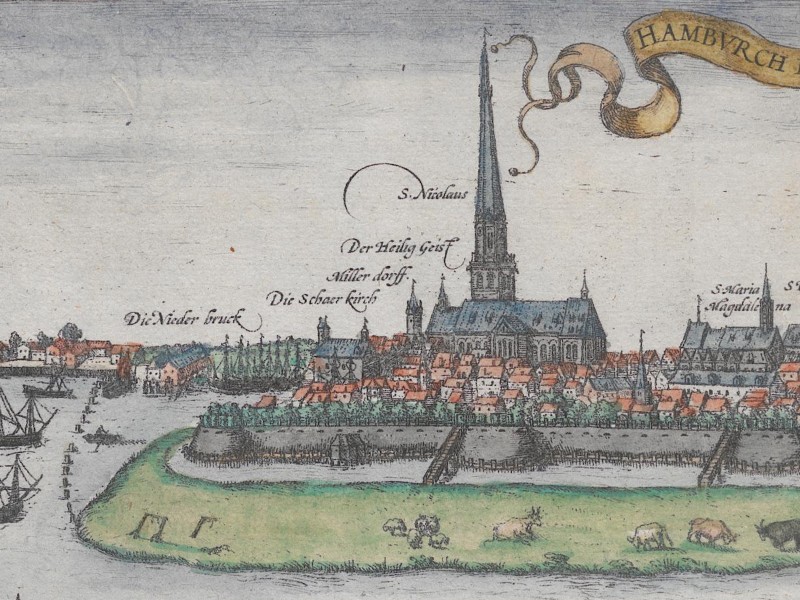 HAMBVRCH
S. Nicolaus
Der Heilig Geist
Miller dorff.
Die Schaer kirch
Die Nieder bruck
S. Maria
Magdale na
S